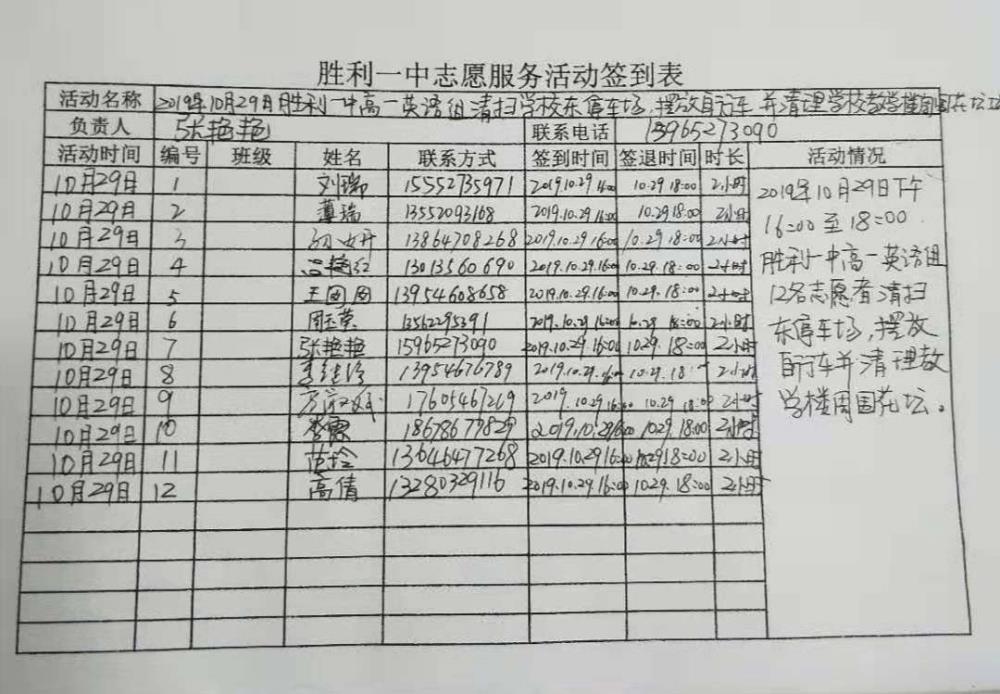 胜利一中志愿服务活动签到表
活动名称 2019年10月29日胜利一中高一英语组清扫学校东停车场,摆放自行车并清理学校教学楼周围花坛
负责人 张艳艳 联系电话 13965273090
活动时间 编号 班级 姓名 联系方式 签到时间 签退时间 时长 活动情况
10月29日 1 刘瑞 15552735971 2019.10.29 16:00 10.29 18:00 2小时
10月29日 2 薄瑞 13552093168 2019.10.29 16:00 10.29 18:00 2小时
10月29日 3 13864708268 2019.10.29 16:00 10.29 18:00 2小时
10月29日 4 13013560690 2019.10.29.16:00 10.29.18:00 2小时
10月29日 5 王囡囡 13954608658 2019.10.29.16:00 10.29.18:00 2小时
10月29日 6 周玉荣 13562295391 2019.10.29 16:00 10.29 18:00 2小时
10月29日 7 张艳艳 15965273090 2019.10.29.16:00 10.29.18:00 2小时
10月29日 8 13954676789 2019.10.29. 10.29.18: 2小时
10月29日 9 17605467269 2019.10.29 16:00 10.29 18:00 2小时
10月29日 10 李霞 18678677829 2019.10.29 16:00 10.29.18:00 2小时
10月29日 11 范玲 13646477268 2019.10.29 16:00 10.29 18:00 2小时
10月29日 12 高倩 13280329116 2019.10.29.16:00 10.29.18:00 2小时
2019年10月29日下午
16:00至18:00
胜利一中高一英语组
12名志愿者清扫
东停车场,摆放
自行车并清理教
学楼周围花坛。